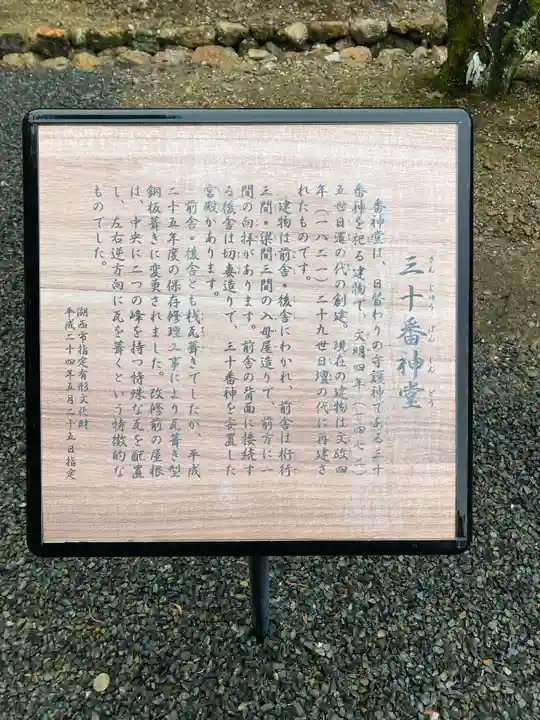 さんじゅうばんしんどう
三十番神堂
番神堂は、日替わりの守護神である三十
番神を祀る建物で、文明四年（一四七二）
五世日運の代の創建。現在の建物は文政四
年（一八二一）二十九世日壇の代に再建さ
れたものです。
建物は前舎・後舎にわかれ、前舎は桁行
三間・梁間三間の入母屋造りで、前方に一
間の向拝があります。前舎の背面に接続す
る後舎は切妻造りで、三十番神を安置した
宮殿があります。
前舎・後舎とも桟瓦葺きでしたが、平成
二十五年度の保存修理工事により瓦葺き型
銅板葺きに変更されました。改修前の屋根
は、中央に二つの峰を持つ特殊な瓦を配置
し、左右逆方向に瓦を葺くという特徴的な
ものでした。
湖西市指定有形文化財
平成二十四年五月二十五日指定